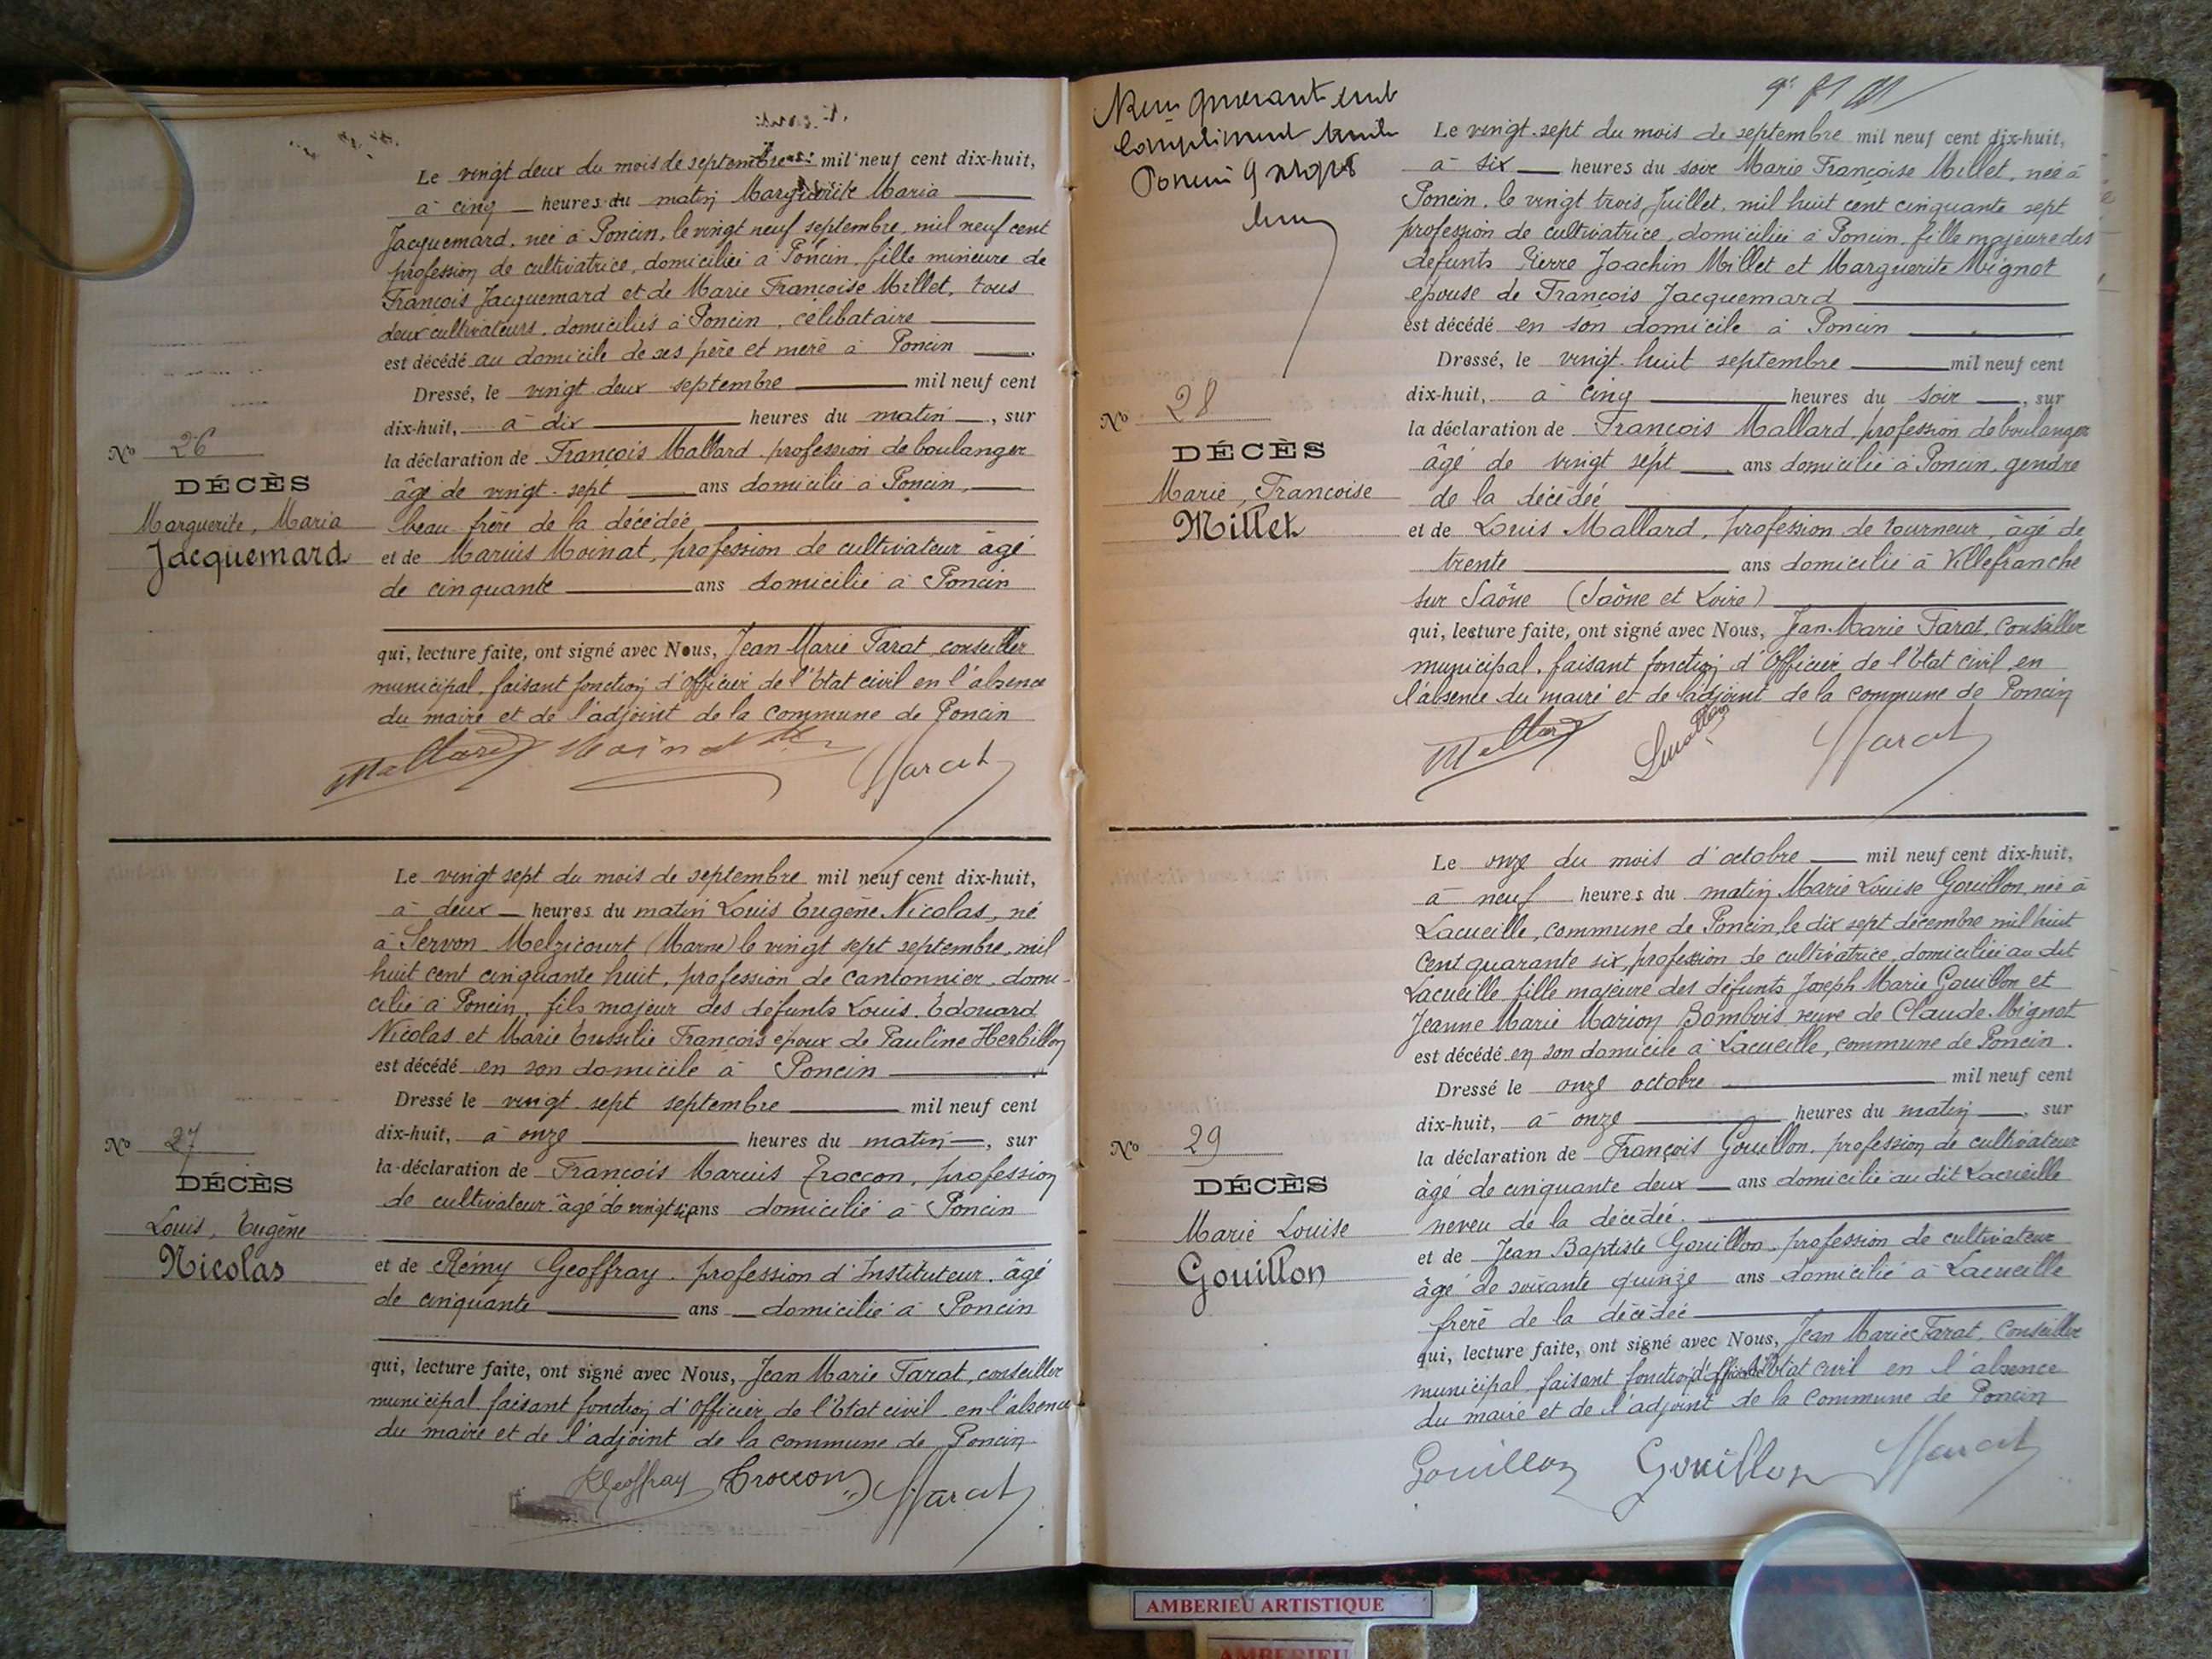 Le vingt deux du mois de septembre mil neuf cent dix-huit,
à cinq heures du matin Marguerite Maria
Jacquemard, née à Poncin, le vingt neuf septembre, mil neuf cent
profession de cultivatrice, domiciliée à Poncin, fille mineure de
François Jacquemard et de Marie Françoise Millet, tous
deux cultivateurs, domiciliés à Poncin, célibataire
est décédé au domicile de ses père et mère à Poncin
Dressé, le vingt deux septembre mil neuf cent
dix-huit, à dix heures du matin, sur
la déclaration de François Mallard, profession de boulanger
âgé de vingt-sept ans domicilié à Poncin,
beau frère de la décédée
et de Marius Moinat, profession de cultivateur âgé
de cinquante ans domicilié à Poncin
qui, lecture faite, ont signé avec Nous, Jean Marie Tarat, conseiller
municipal, faisant fonction d'officier de l'Etat civil en l'absence
du maire et de l'adjoint de la commune de Poncin
Mallard Moinat Tarat
No 26
DÉCÈS
Marguerite, Maria
Jacquemard
Le vingt sept du mois de septembre mil neuf cent dix-huit,
à deux heures du matin Louis Eugène Nicolas, né
à Servon-Melzicourt (Marne) le vingt sept septembre, mil
huit cent cinquante huit, profession de cantonnier, domi-
cilié à Poncin, fils majeur des défunts Louis Edouard
Nicolas et Marie François époux de Pauline Herbillon
est décédé en son domicile à Poncin
Dressé le vingt sept septembre mil neuf cent
dix-huit, à onze heures du matin, sur
la déclaration de François Marius Troccon, profession
de cultivateur âgé de ans domicilié à Poncin
et de Rémy Geoffray, profession d'Instituteur, âgé
de cinquante ans domicilié à Poncin
qui, lecture faite, ont signé avec Nous, Jean Marie Tarat, conseiller
municipal faisant fonction d'officier de l'Etat civil en l'absence
du maire et de l'adjoint de la commune de Poncin
RGeoffray Troccon Tarat
No 27
DÉCÈS
Louis, Eugène
Nicolas
Le vingt-sept du mois de septembre mil neuf cent dix-huit,
à six heures du soir Marie Françoise Millet, née à
Poncin, le vingt trois Juillet, mil huit cent cinquante sept
profession de cultivatrice, domiciliée à Poncin, fille majeure des
défunts Pierre Joachin Millet et Marguerite Mignot
épouse de François Jacquemard
est décédé en son domicile à Poncin
Dressé, le vingt-huit septembre mil neuf cent
dix-huit, à cinq heures du soir, sur
la déclaration de François Mallard, profession de boulanger
âgé de vingt sept ans domicilié à Poncin, gendre
de la décédée
et de Louis Mallard, profession de tourneur, âgé de
trente ans domicilié à Villefranche
sur Saône (Saône et Loire)
qui, lecture faite, ont signé avec Nous, Jean-Marie Tarat, Conseiller
municipal, faisant fonction d'Officier de l'Etat civil en
l'absence du maire et de l'adjoint de la commune de Poncin
Mallard Tarat
No 28
DÉCÈS
Marie, Françoise
Millet
Le onze du mois d'octobre mil neuf cent dix-huit,
à neuf heures du matin Marie Louise Gouillon, née à
Lacueille, commune de Poncin, le dix sept décembre mil huit
cent quarante six, profession de cultivatrice, domiciliée au dit
Lacueille fille majeure des défunts Joseph Marie Gouillon et
Jeanne Marie Marion Bombois veuve de Claude Mignot
est décédé en son domicile à Lacueille, commune de Poncin.
Dressé le onze octobre mil neuf cent
dix-huit, à onze heures du matin, sur
la déclaration de François Gouillon, profession de cultivateur
âgé de cinquante deux ans domicilié au dit Lacueille
neveu de la décédée.
et de Jean Baptiste Gouillon, profession de cultivateur
âgé de soixante quinze ans domicilié à Lacueille
frère de la décédée
qui, lecture faite, ont signé avec Nous, Jean Marie Tarat, Conseiller
municipal faisant fonction d'officier de l'Etat civil en l'absence
du maire et de l'adjoint de la commune de Poncin
Gouillon Gouillon Tarat
No 29
DÉCÈS
Marie Louise
Gouillon
AMBERIEU ARTISTIQUE
AMBERIEU